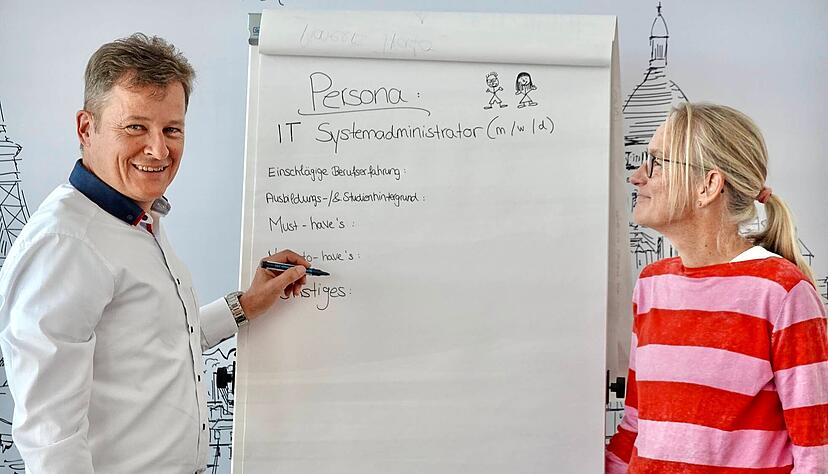 Persona :
IT Systemadministrator (m/w/d)
Einschlägige Berufserfahrung :
Ausbildungs-/& Studienhintergrund :
Must-have's :
to-have's :